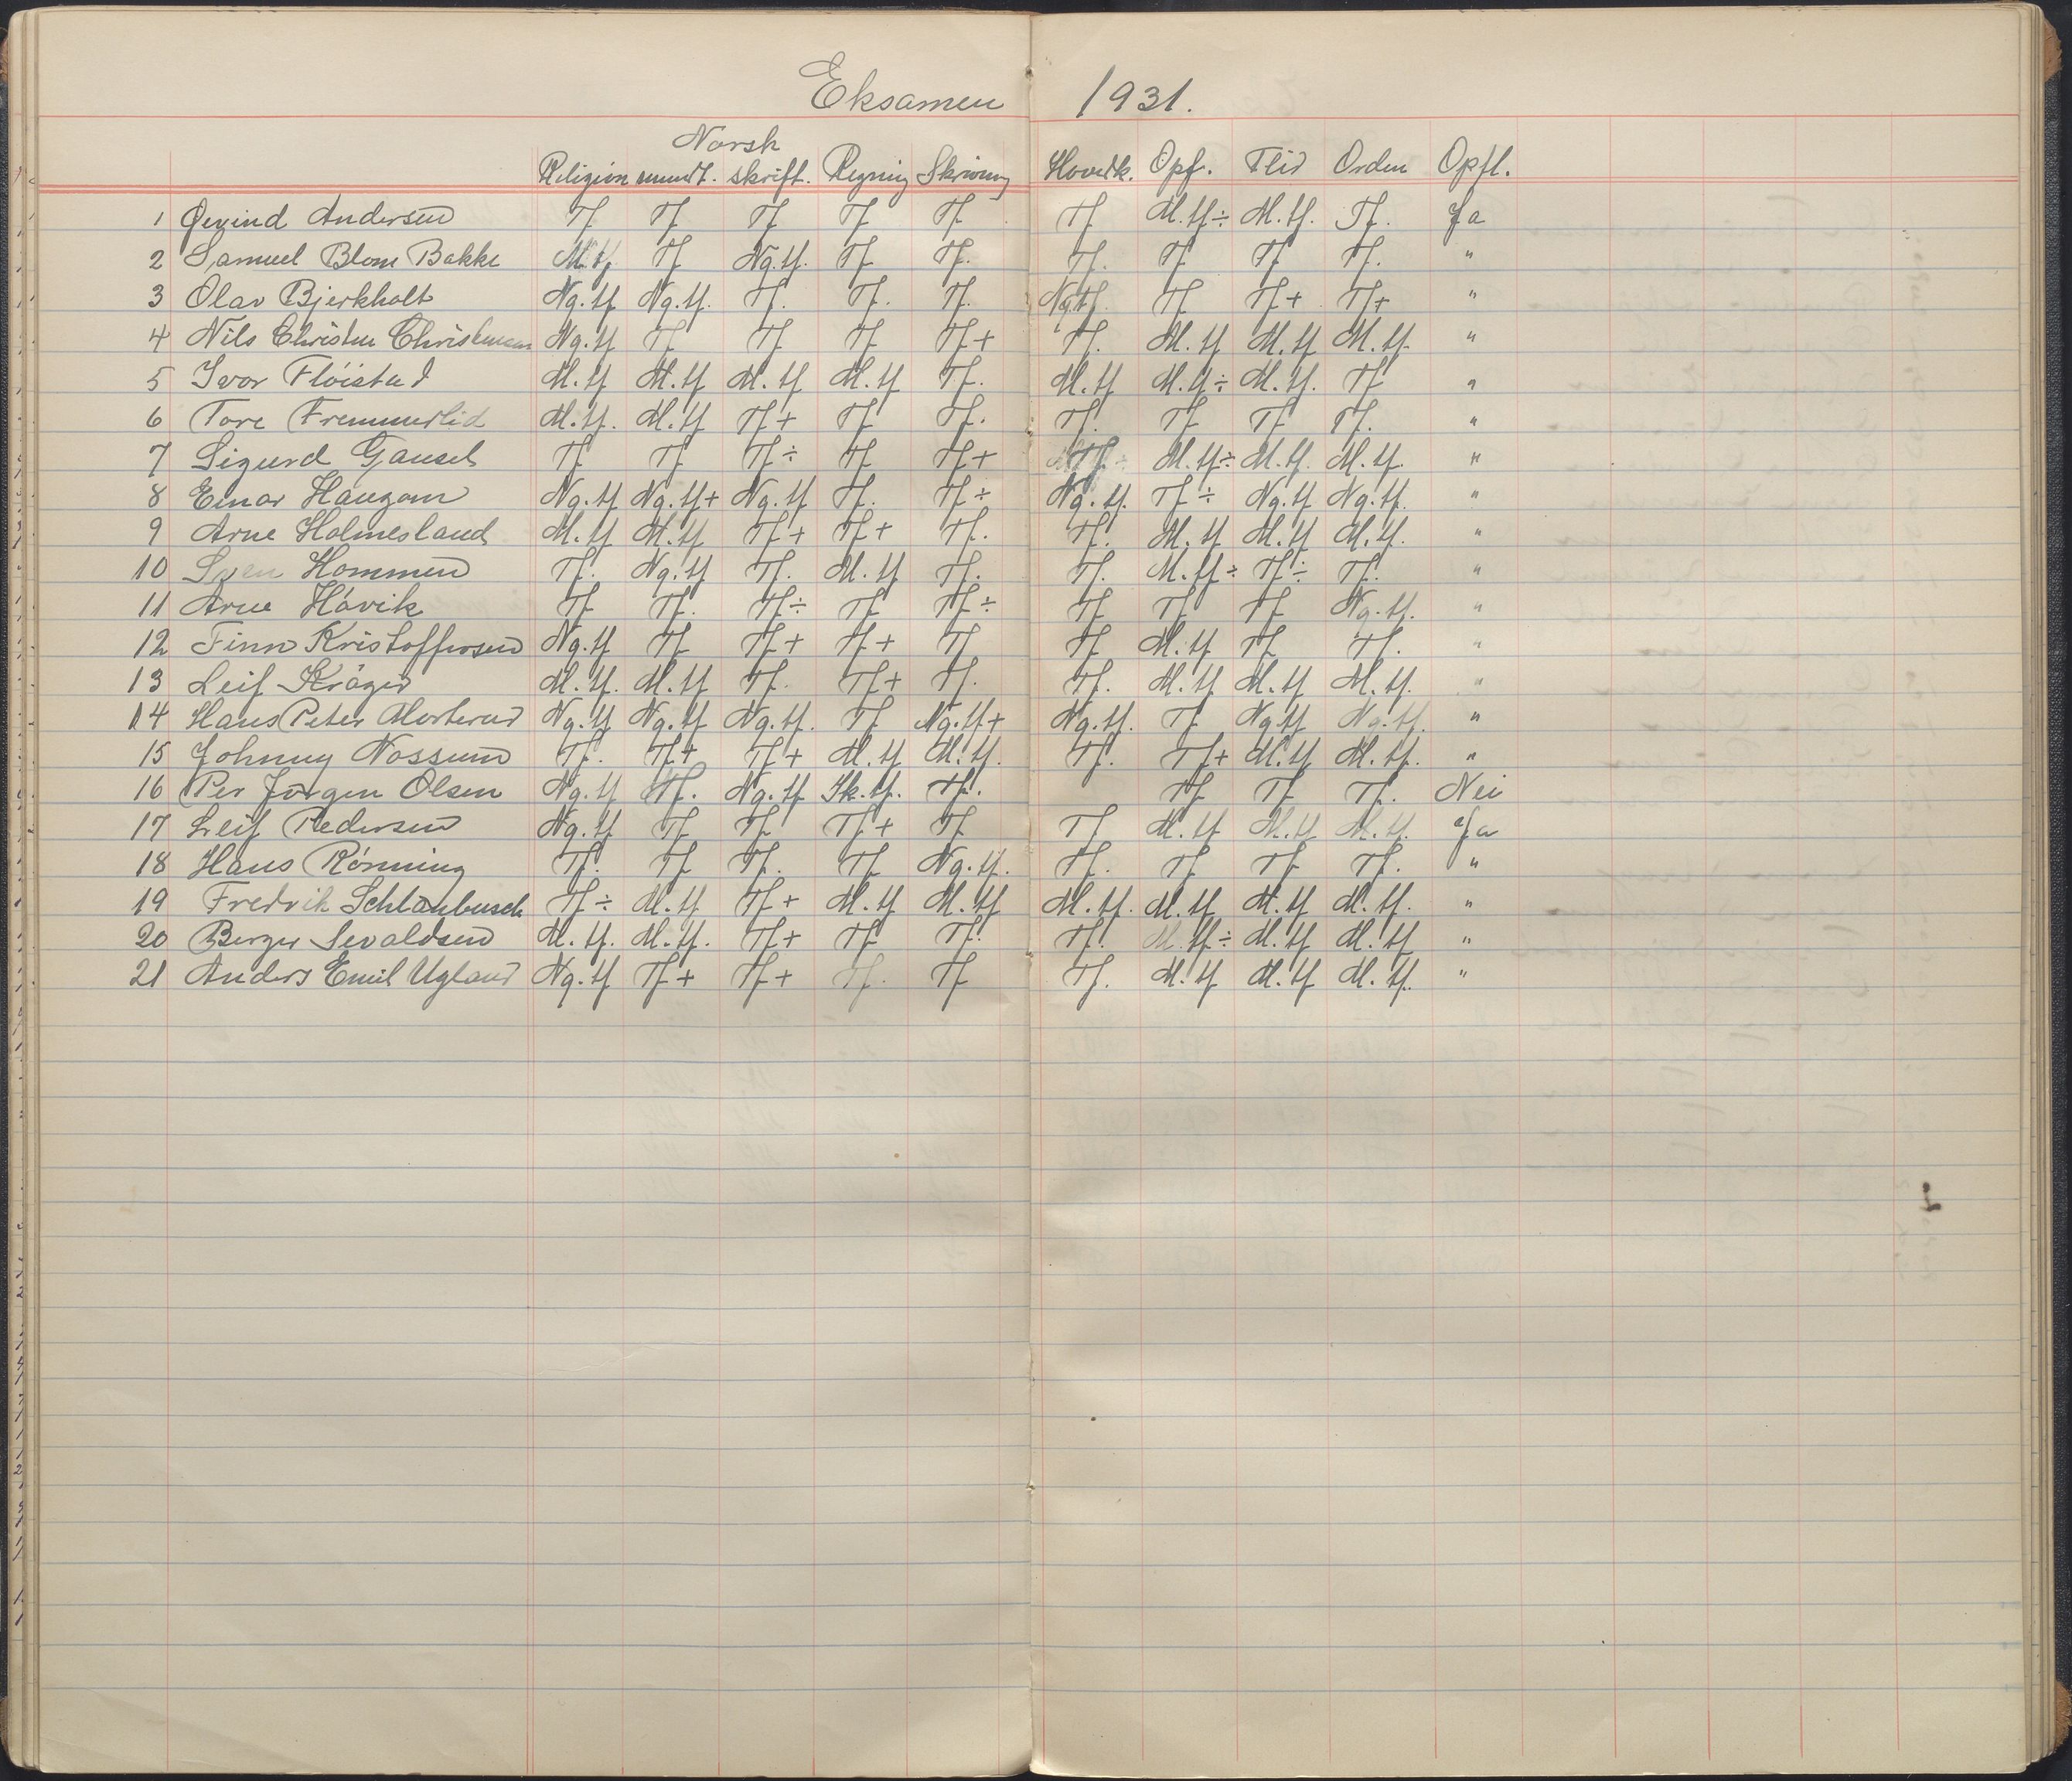 Eksamen 1931.
Norsk
Religion mundt. skrift. Regning Skrivning Hovedk. Opf. Flid Orden Opfl.
1 Øevind Andersen Tf Tf Tf Tf Tf. Tf M.tf÷ M.tf. Tf. Ja
2 Samuel Blom Bakke M.tf Tf Ng.tf. Tf Tf. Tf. Tf Tf Tf. "
3 Olav Bjerkholt Ng.tf Ng.tf. Tf. Tf. Tf. Ng.tf. Tf Tf+ Tf+ "
4 Nils Christen Christensen Ng.tf Tf Tf Tf Tf+ Tf. M.tf M.tf M.tf. "
5 Ivar Flöistad M.tf M.tf M.tf M.tf Tf. M.tf M.tf÷ M.tf. Tf "
6 Tore Fremmerlid M.tf. M.tf Tf+ Tf Tf. Tf. Tf Tf Tf. "
7 Sigurd Gausel Tf Tf Tf÷ Tf Tf+ Tf. M.tf÷ M.tf. M.tf. "
8 Einar Haugom Ng.tf Ng.tf+ Ng.tf Tf. Tf÷ Ng.tf. Tf÷ Ng.tf Ng.tf. "
9 Arne Holmesland M.tf M.tf Tf+ Tf+ Tf. Tf. M.tf M.tf M.tf. "
10 Sven Hommen Tf. Ng.tf Tf. M.tf Tf. Tf. M.tf÷ Tf÷ Tf. "
11 Arne Håvik Tf Tf. Tf÷ Tf Tf÷ Tf Tf Tf Ng.tf. "
12 Finn Kristoffersen Ng.tf Tf Tf+ Tf+ Tf Tf M.tf Tf Tf. "
13 Leif Kröger M.tf. M.tf Tf. Tf+ Tf. Tf. M.tf M.tf M.tf. "
14 Hans Peter Morterud Ng.tf Ng.tf Ng.tf. Tf Ng.tf+ Ng.tf. Tf Ng.tf Ng.tf. "
15 Johnny Nossum Tf. Tf+ Tf+ M.tf M.tf. Tf. Tf+ M.tf M.tf. "
16 Per Jörgen Olsen Ng.tf Tf. Ng.tf Ik.tf. Tf. Tf Tf Tf. Nei
17 Leif Pedersen Ng.tf Tf Tf Tf+ Tf Tf M.tf M.tf M.tf. Ja
18 Hans Rönning Tf. Tf Tf. Tf Ng.tf. Tf. Tf Tf Tf. "
19 Fredrik Schlanbusch Tf÷ M.tf Tf+ M.tf M.tf M.tf. M.tf M.tf M.tf. "
20 Berger Sevaldsen M.tf. M.tf. Tf+ Tf Tf. Tf. M.tf÷ M.tf M.tf "
21 Anders Emil Ugland Ng.tf Tf+ Tf+ Tf. Tf Tf. M.tf M.tf M.tf. "